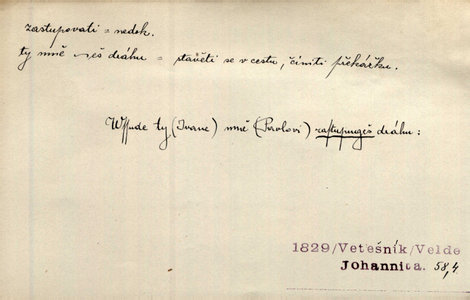 zastupovati = nedok.
ty mně -eš dráhu = stavěti se v cestu, činiti překážku.
Wssude ty (Ivane) mně (Pavlovi) zastupugeš dráhu:
1829/Vetešník/Velde
Johannica. 58,4